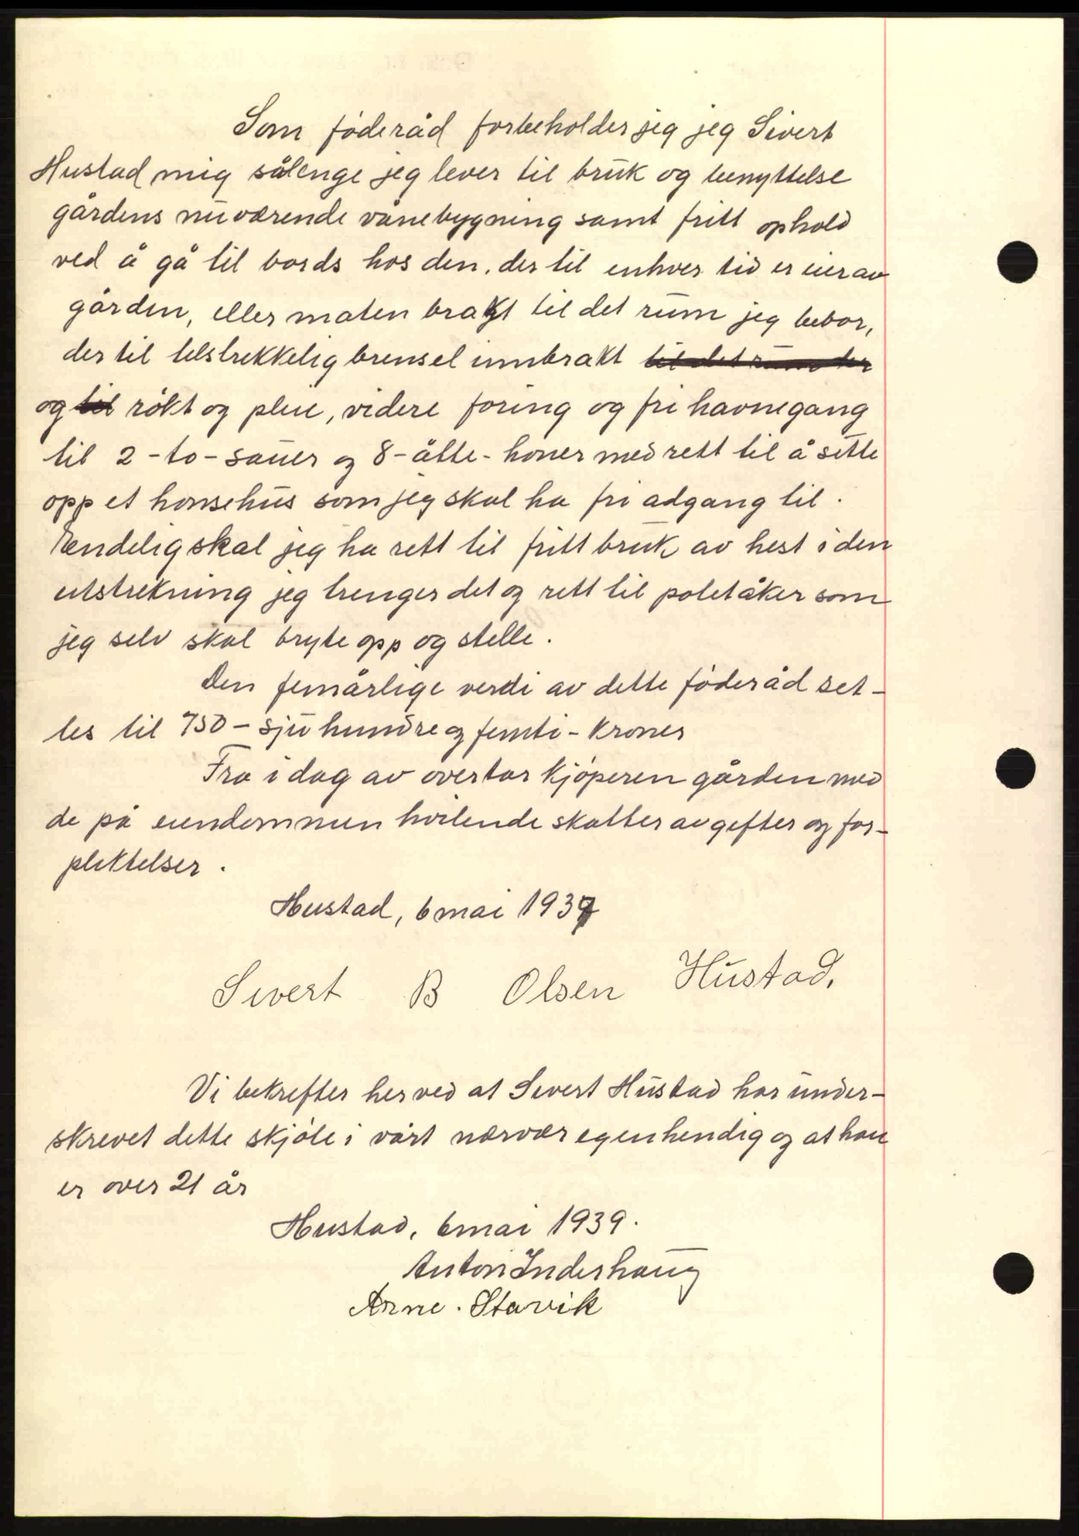 Som föderåd forbeholder jeg jeg Sivert
Hustad mig sålenge jeg lever til bruk og benyttelse
gårdens nuværende vånebygning samt fritt ophold
ved å gå til bords hos den, der til enhver tid er eier av
gården, eller maten brakt til det rum jeg bebor,
der til tilstrekkelig brensel innbrakt til det rum der
og til rökt og pleie, videre foring og fri havnegang
til 2 - to - sauer og 8 - åtte - honer med rett til å sette
opp et honsehus som jeg skal ha fri adgang til.
Eendelig skal jeg ha rett til fritt bruk av hest i den
utstrekning jeg trenger det og rett til potetåker som
jeg selv skal bryte opp og stelle.
Den femårlige verdi av dette föderåd set-
tes til 750 - sju hundre og femti - kroner
Fra i dag av overtar kjöperen gården med
de på eiendommen hvilende skatter avgifter og for-
pliktelser.
Hustad, 6 mai 1939
Sivert B Olsen Hustad.
Vi bekrefter herved at Sivert Hustad har under-
skrevet dette skjöte i vårt nærvær egenhendig og at han
er over 21 år
Hustad, 6 mai 1939.
Anton Inderhaug
Arne. Stavik